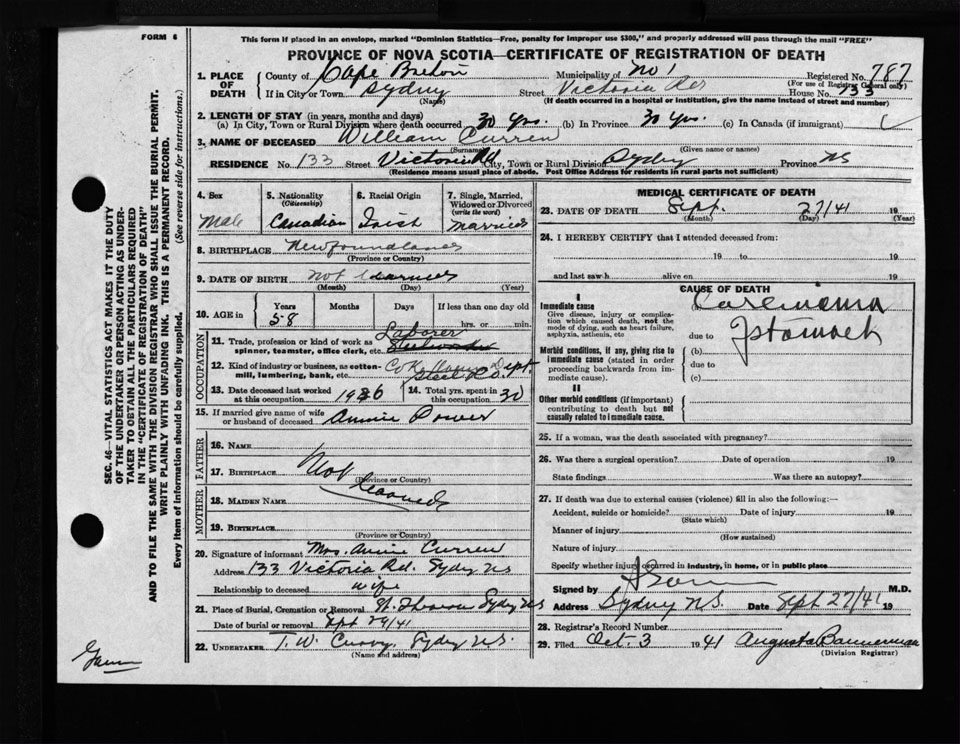 FORM 6
This form if placed in an envelope, marked "Dominion Statistics—Free, penalty for improper use $300," and properly addressed will pass through the mail "FREE"
PROVINCE OF NOVA SCOTIA—CERTIFICATE OF REGISTRATION OF DEATH
1. PLACE OF DEATH County of Cape Breton Municipality of No 1 Registered No. 787
(For use of Registrar General only)
If in City or Town Sydney Street Victoria Rd House No. 133
(Name) (If death occurred in a hospital or institution, give the name instead of street and number)
2. LENGTH OF STAY (in years, months and days)
(a) In City, Town or Rural Division where death occurred 30 yrs. (b) In Province 30 yrs. (c) In Canada (if immigrant)
3. NAME OF DECEASED William Curren
(Surname) (Given name or names)
RESIDENCE No. 133 Street Victoria Rd City, Town or Rural Division Sydney Province NS
(Residence means usual place of abode. Post Office Address for residents in rural parts not sufficient)
4. Sex Male
5. Nationality (Citizenship) Canadian
6. Racial Origin Irish
7. Single, Married, Widowed or Divorced (write the word) Married
8. BIRTHPLACE Newfoundland
(Province or Country)
9. DATE OF BIRTH not learned
(Month) (Day) (Year)
10. AGE in Years 58 Months Days If less than one day old hrs. or min.
OCCUPATION
11. Trade, profession or kind of work as spinner, teamster, office clerk, etc. Laborer
12. Kind of industry or business, as cotton-mill, lumbering, bank, etc. Dept. Steel Co
13. Date deceased last worked at this occupation 1936
14. Total yrs. spent in this occupation 30
15. If married give name of wife or husband of deceased Annie Power
FATHER
16. NAME
17. BIRTHPLACE Not learned
(Province or Country)
MOTHER
18. MAIDEN NAME
19. BIRTHPLACE
(Province or Country)
20. Signature of informant Mrs. Annie Curren
Address 133 Victoria Rd. Sydney NS
Relationship to deceased wife
21. Place of Burial, Cremation or Removal Sydney NS
Date of burial or removal Sept 29/41
22. UNDERTAKER T. W. Curry Sydney NS.
(Name and address)
MEDICAL CERTIFICATE OF DEATH
23. DATE OF DEATH Sept. 27/41 19
(Month) (Day) (Year)
24. I HEREBY CERTIFY that I attended deceased from:
19 to 19
and last saw h alive on 19
CAUSE OF DEATH
I
Immediate cause
Give disease, injury or complication which caused death, not the mode of dying, such as heart failure, asphyxia, asthenia, etc
(a) Carcinoma
due to
Stomach
Morbid conditions, if any, giving rise to immediate cause (stated in order proceeding backwards from immediate cause).
(b)
due to
(c)
II
Other morbid conditions (if important) contributing to death but not causally related to immediate cause.
25. If a woman, was the death associated with pregnancy?
26. Was there a surgical operation? Date of operation 19
State findings Was there an autopsy?
27. If death was due to external causes (violence) fill in also the following:—
Accident, suicide or homicide? Date of injury 19
(State which)
Manner of injury
(How sustained)
Nature of injury
Specify whether injury occurred in industry, in home, or in public place
Signed by M.D.
Address Sydney N.S. Date Sept 27/41 19
28. Registrar's Record Number
29. Filed Oct 3 1941 Augusta Bannerman
(Division Registrar)
SEC. 46—VITAL STATISTICS ACT MAKES IT THE DUTY
OF THE UNDERTAKER OR PERSON ACTING AS UNDER-
TAKER TO OBTAIN ALL THE PARTICULARS REQUIRED
IN THE "CERTIFICATE OF REGISTRATION OF DEATH"
AND TO FILE THE SAME WITH THE DIVISION REGISTRAR WHO SHALL ISSUE THE BURIAL PERMIT.
WRITE PLAINLY WITH UNFADING INK. THIS IS A PERMANENT RECORD.
Every item of Information should be carefully supplied. (See reverse side for instructions.)